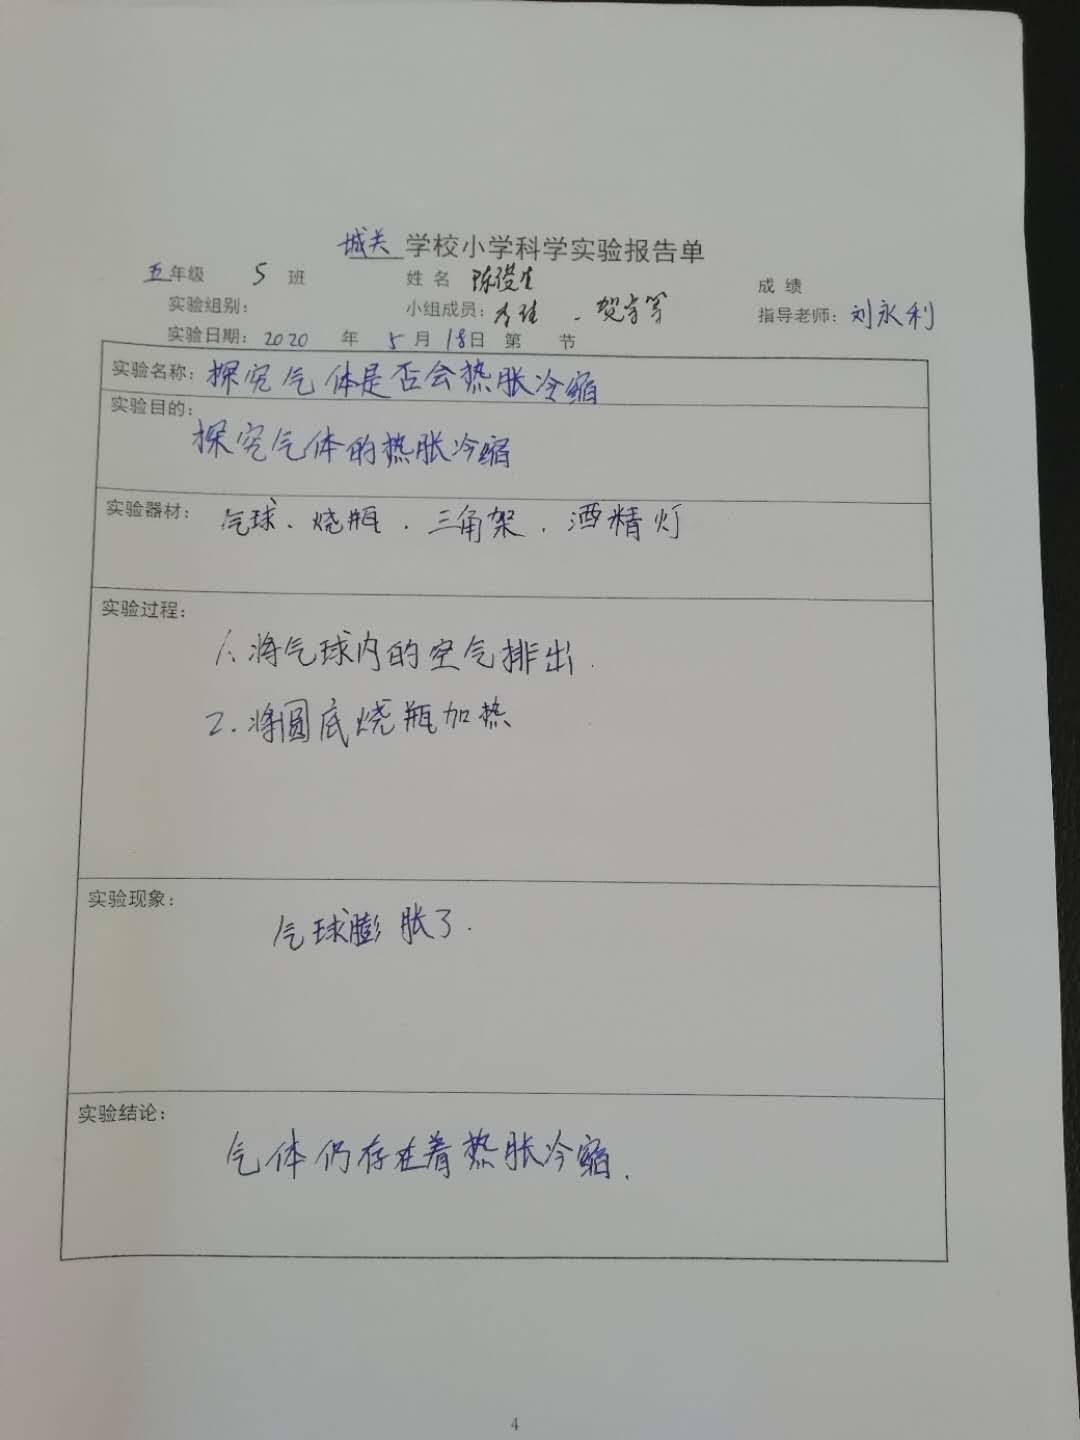 城关 学校小学科学实验报告单
五年级 5 班 姓名 陈 生 成绩
实验组别： 小组成员： 佳 、贺 等 指导老师：刘永利
实验日期：2020 年 5 月 18日 第 节
实验名称：探究气体是否会热胀冷缩
实验目的：
探究气体的热胀冷缩
实验器材： 气球、烧瓶、三角架、酒精灯
实验过程：
1、将气球内的空气排出.
2.将圆底烧瓶加热
实验现象：
气球膨胀了.
实验结论：
气体仍存在着热胀冷缩.
4